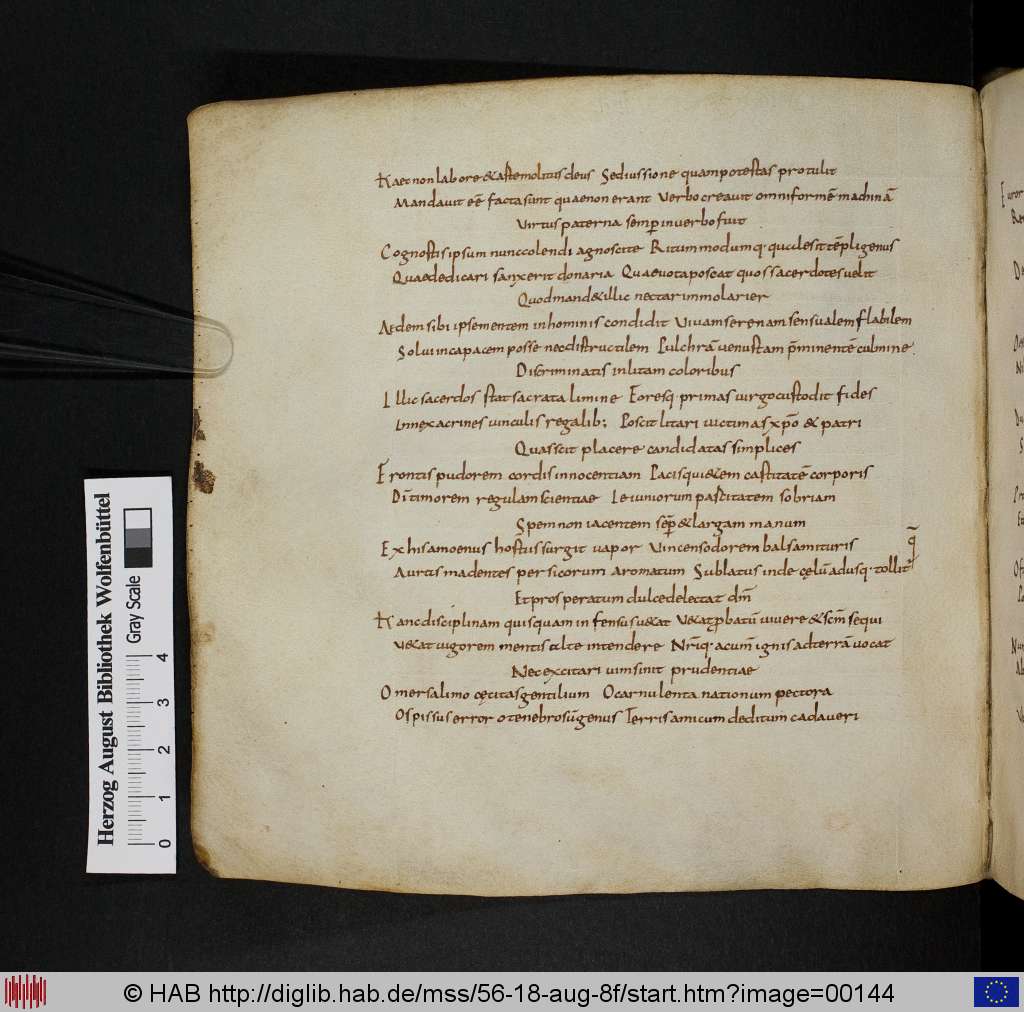 Haec non labore & arte molitus deus Sed iussione quam potestas protulit
Mandavit eē facta sunt quae non erant Verbo creavit omniformē machinā
Virtus paterna semp in verbo fuit
Cognostis ipsum nunc colendi agnoscite Ritum modumq. quē lesit tēpli genus
Quae dedicari sanxerit donaria Quae vota poscat quos sacerdotes velit
Quod mand& illic nectar immolarier
Aedem sibi ipse mentem in hominis condidit Vivam serenam sensualem flabilem
Solvi incapacem posse nec distructilem Pulchrā venustam p̄minentē culmine
Discriminatis inlitam coloribus
Illic sacerdos stat sacrata limine Foresq. primas virgo custodit fides
Innexa crines vinculis regalib; Poscit litari victimas xp̄o & patri
Quas scit placere candidatas simplices
Frontis pudorem cordis innocentiam Pacis qui&em castitatē corporis
Dī timorem regulam scientiae Ieiuniorum pastitatem sobriam
Spem non iacentem sēp & largam manum
Ex his amoenus hostiis surgit vapor Vincens odorem balsami turis
Auris madentes persicorum aromatum Sublatus inde cęlū adusq. tollit
Et prosperatum dulce delectat dm̄
Hanc disciplinam quisquam in fensus u&at U&at p̱batū vivere & scm̄ sequi
U&at vigorem mentis alte intendere Nr̄iq. acum̄ ignis ad terrā vocat
Nec excitari vim sinit prudentiae
O mersa limo cęcitas gentilium O carnulenta nationum pectora
O spissus error o tenebrosū genus Terris amicum deditum cadaveri
Herzog August Bibliothek Wolfenbüttel
Gray Scale
0 1 2 3 4
© HAB http://diglib.hab.de/mss/56-18-aug-8f/start.htm?image=00144